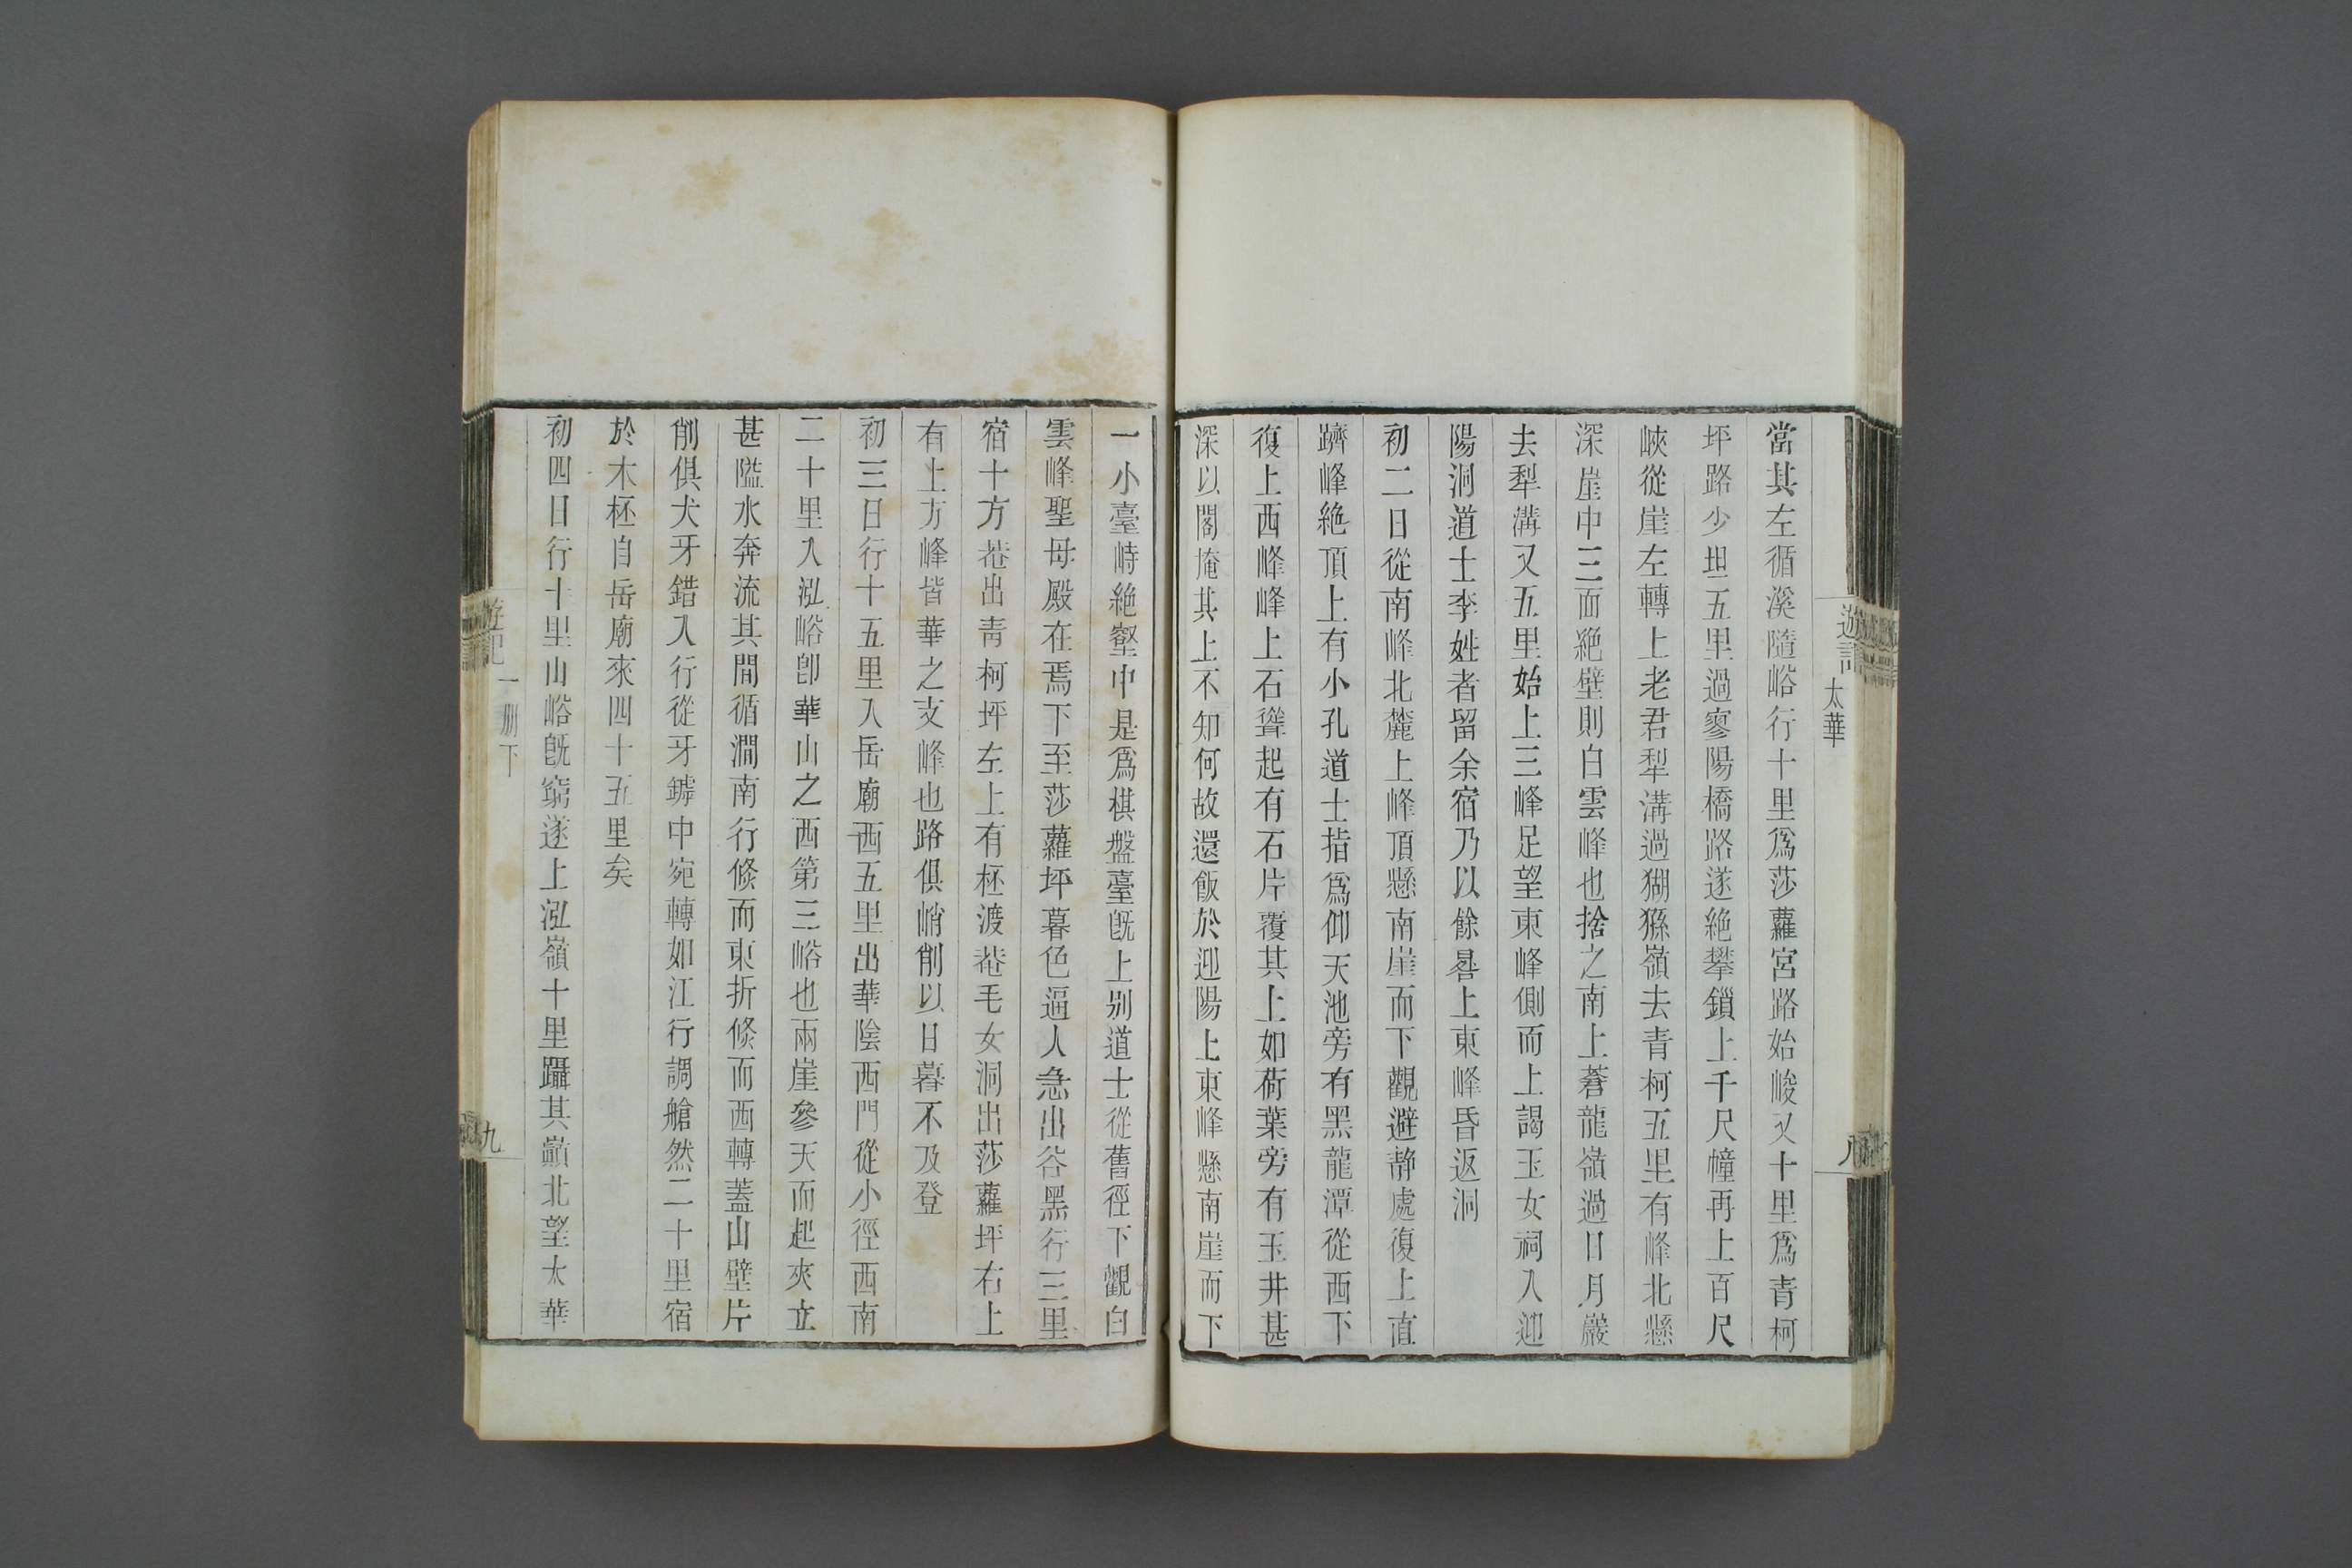 遊記
太華
八
當其左循溪隨峪行十里爲莎蘿宮路始峻又十里爲青柯
坪路少坦五里過寥陽橋路遂絶攀鎖上千尺幢再上百尺
峽從崖左轉上老君犁溝過猢猻嶺去青柯五里有峰北懸
深崖中三面絶壁則白雲峰也捨之南上蒼龍嶺過日月巖
去犁溝又五里始上三峰足望東峰側而上謁玉女祠入迎
陽洞道士李姓者留余宿乃以餘晷上東峰昏返洞
初二日從南峰北麓上峰頂懸南崖而下觀避靜處復上直
躋峰絶頂上有小孔道士指爲仰天池旁有黑龍潭從西下
復上西峰峰上石聳起有石片覆其上如荷葉旁有玉井甚
深以閣掩其上不知何故還飯於迎陽上東峰懸南崖而下
一小臺峙絶壑中是爲棋盤臺旣上别道士從舊徑下觀白
雲峰聖母殿在焉下至莎蘿坪暮色逼人急出谷黑行三里
宿十方菴出青柯坪左上有柸渡菴毛女洞出莎蘿坪右上
有上方峰皆華之支峰也路俱峭削以日暮不及登
初三日行十五里入岳廟西五里出華陰西門從小徑西南
二十里入泓峪卽華山之西第三峪也兩崖參天而起夾立
甚隘水奔流其間循澗南行倐而東折倐而西轉蓋山壁片
削俱犬牙錯入行從牙罅中宛轉如江行調艙然二十里宿
於木柸自岳廟來四十五里矣
初四日行十里山峪旣窮遂上泓嶺十里躡其巓北望太華
遊記
一册下
九